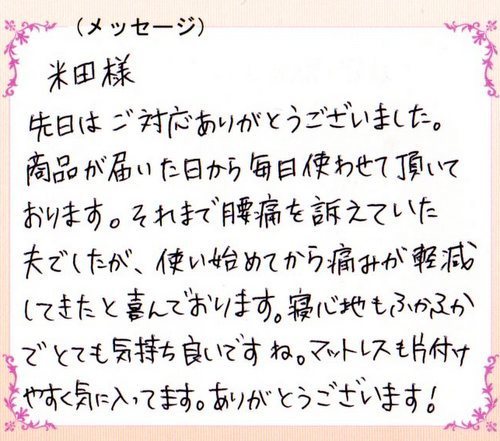 (メッセージ)
米田様
先日はご対応ありがとうございました。
商品が届いた日から毎日使わせて頂いて
おります。それまで腰痛を訴えていた
夫でしたが、使い始めてから痛みが軽減
してきたと喜んでおります。寝心地もふかふか
でとても気持ち良いですね。マットレスも片付け
やすく気に入ってます。ありがとうございます!